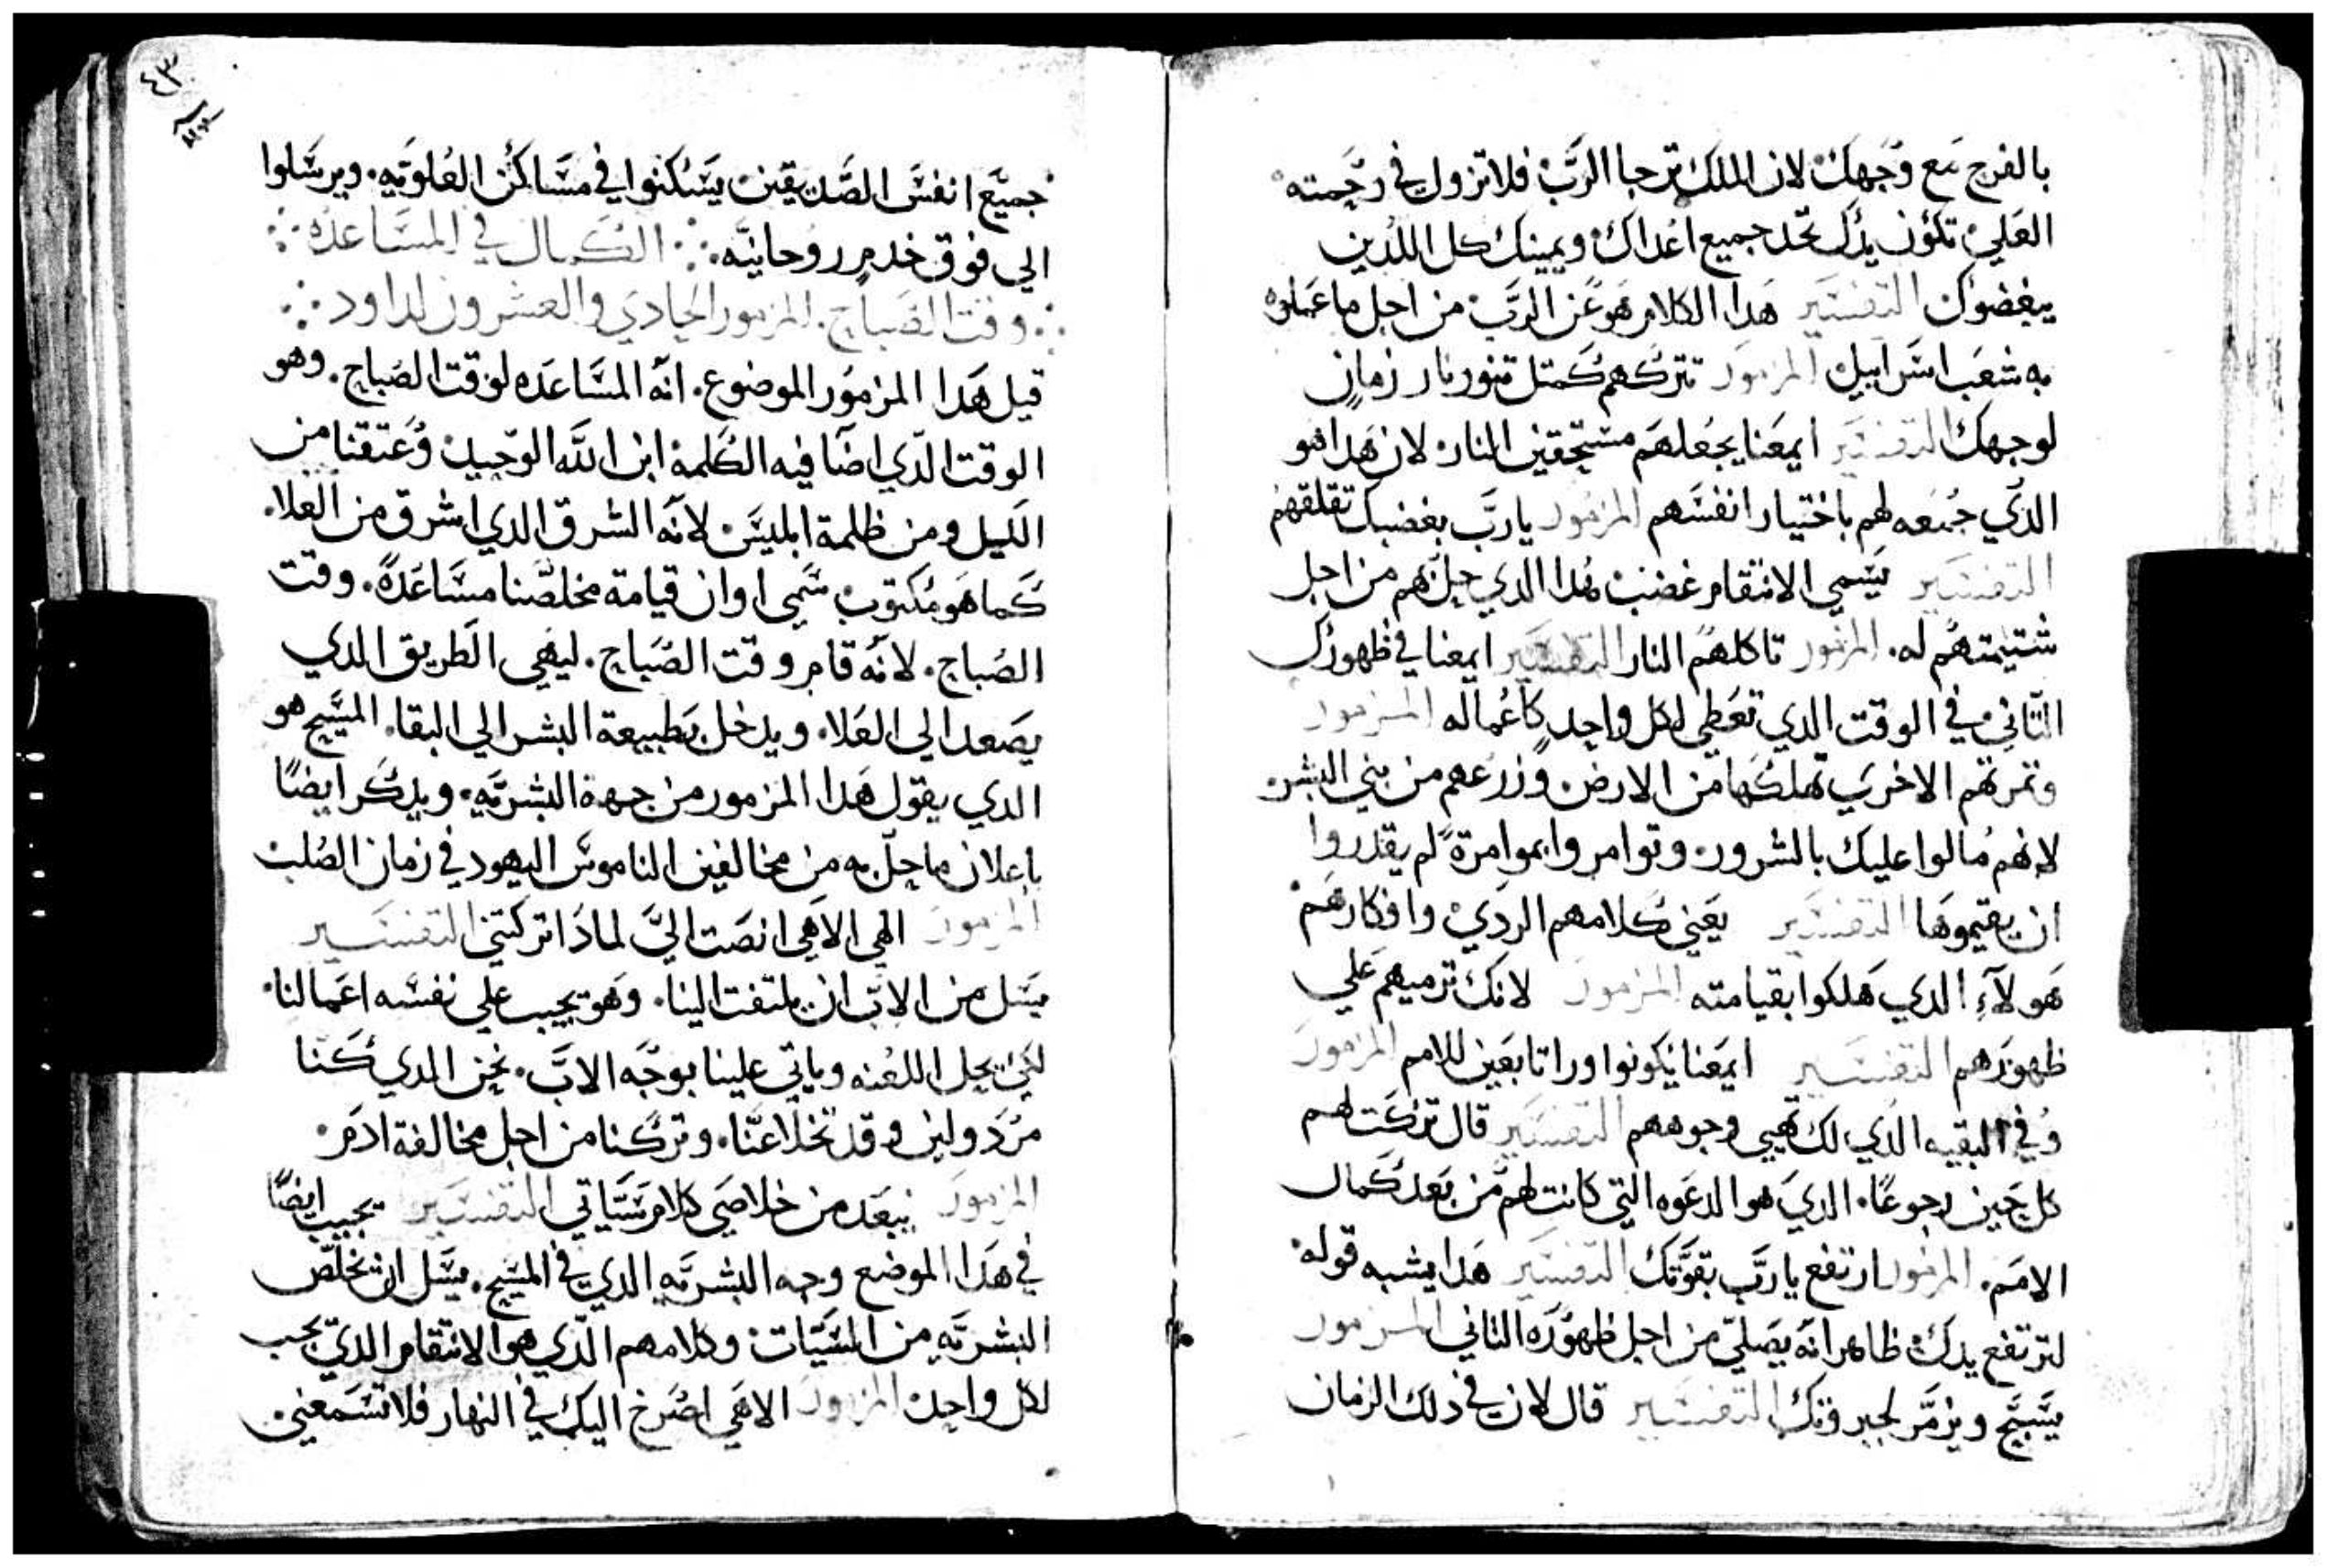 بالفرح مع وجهك لان الملك ترجا الرب فلا تزول في رحمته
العلي تكون يدك تحد جميع اعداك ويمينك كل اللدين
يبغضوك التفسير هدا الكلام هو عن الرب من اجل ما عملوه
به شعب اسراييل المزمور تتركهم كمتل تنور نار زمان
لوجهك التفسير ايمعنا يجعلهم مستحقين النار لان هدا هو
الدي جمعه لهم باختيار انفسهم المزمور يا رب بغضبك تقلقهم
التفسير يسمي الانتقام غضب هدا الدي حل بهم من اجل
شتيمتهم له. المزمور تاكلهم النار التفسير ايمعنا في ظهورك
التاني في الوقت الدي تعطي لكل واحد كاعماله المزمور
وتمرتهم الاخري تهلكها من الارض وزرعهم من بني البشر
لانهم مالوا عليك بالشرور وتوامروا بموامرة لم يقدروا
ان يقيموها التفسير يعني كلامهم الردي وافكارهم
هولاء الدي هلكوا بقيامته المزمور لانك ترميهم علي
ظهورهم التفسير ايمعنا يكونوا ورا تابعين للامم المزمور
وفي البقيه الدي لك تهيي وجوههم التفسير قال تركت لهم
كل حين رجوعا. الدي هو الدعوه التي كانت لهم من بعد كمال
الامم. المزمور ارتفع يا رب بقوتك التفسير هدا يشبه قوله
لترتفع يدك ظاهر انه يصلي من اجل ظهوره التاني المزمور
يسبح ويزمر لجبروتك التفسير قال لان في دلك الزمان
٤٣
جميع انفس الصديقين يسكنوا في مساكن العلويه. ويرسلوا
الي فوق خدم روحانيه. الكمال في المساعده
وقت الصباح. المزمور الحادي والعشرون لداود
قيل هدا المزمور الموضوع. انه المساعده لوقت الصباح. وهو
الوقت الدي اضا فيه الكلمة ابن الله الوحيد وعتقنا من
الليل ومن ظلمة ابليس لانه الشرق الدي اشرق من العلا.
كما هو مكتوب سمي اوان قيامة مخلصنا مساعدة. وقت
الصباح. لانه قام وقت الصباح. ليهي الطريق الدي
يصعد الي العلا. ويدخل بطبيعة البشر الي البقا. المسيح هو
الدي يقول هدا المزمور من جهة البشريه. ويدكر ايضا
باعلان ما حل به من مخالفين الناموس اليهود في زمان الصلب
المزمور الهي الاهي انصت الي لمادا تركتني التفسير
يسل من الاب ان يلتفت الينا. وهو يجيب علي نفسه اعمالنا
لكي يحل اللعنه وياتي علينا بوجه الاب. نحن الدي كنا
مردولين وقد تخلا عنا. وتركنا من اجل مخالفة ادم
المزمور يبعد من خلاصي كلام سياتي التفسير يجيب ايضا
في هدا الموضع وجه البشريه الدي في المسيح. يسل ان تخلص
البشريه من السيات وكلامهم الدي هو الانتقام الدي يجب
لكل واحد المزمور الاهي اصرخ اليك في النهار فلا تسمعني.